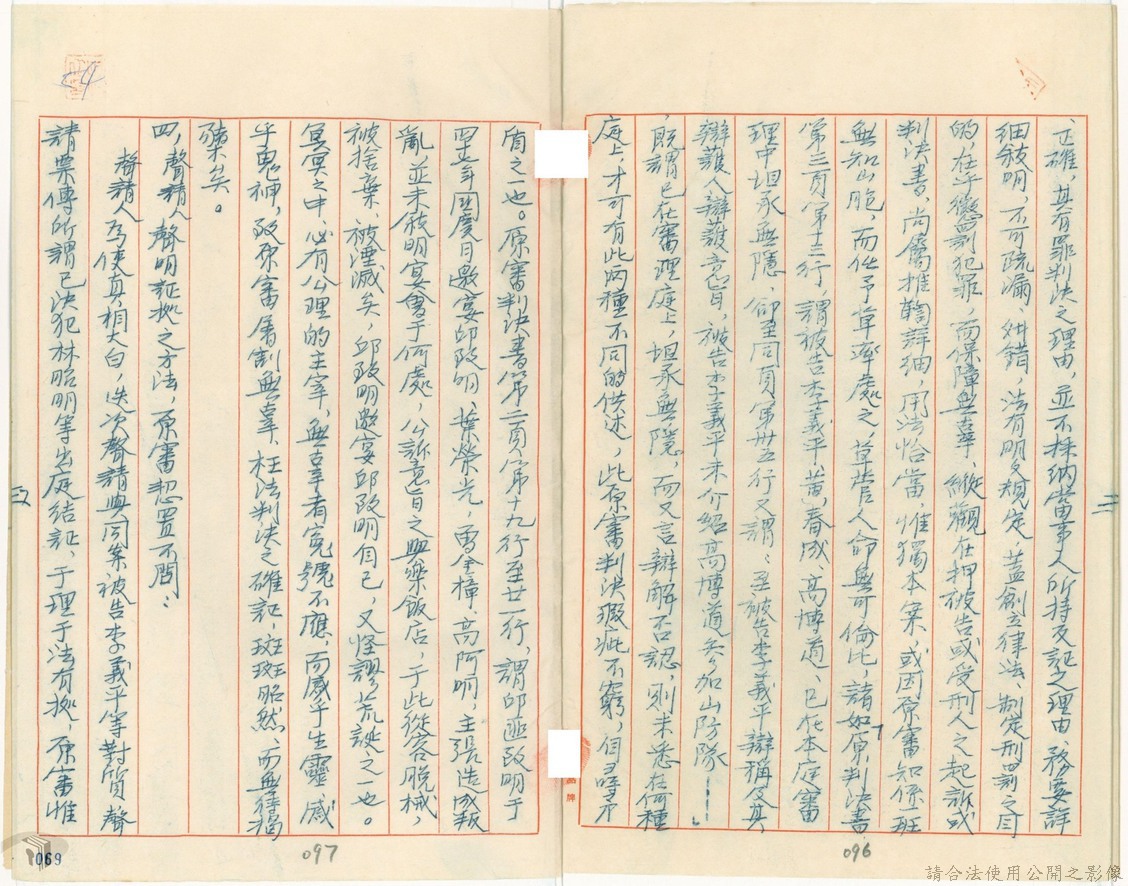 正確，其有罪判決之理由，並不採納當事人所持反証之理由、務要詳
細敍明，不可疏漏、舛錯，法有明文規定，蓋創立律法、制定刑罰之目
的，在乎懲罰犯罪，而保障無辜、縱觀在押被告或受刑人之起訴或
判決書、尚屬推鞫詳細，用法恰當，惟獨本案，或因原審知係班
無知山胞，而任予草率處之，草菅人命無可倫比，諸如「原判決書
第三頁第十三行，謂被告李義平、黃春成、高博道、已在本庭審
理中坦承無隱，卻至同頁第卅五行又謂：至被告李義平辯稱及其
辯護人辯護意旨，被告李義平未介紹高博道參加山防隊———」
，既謂已在審理庭上，坦承無隱，而又言辯解不認，則未悉在何種
庭上，才可有此兩種不同的供述，此原審判決瑕疵不窮，自尋矛
盾之一也。原審判決書第二頁第十九行至廿一行，謂邱匪致明于
四十年國慶日邀宴邱致明、葉榮光，曾金樟、高阿明，主張造成叛
亂，並未敍明宴會于何處，公訴意旨之興樂飯店，于此從容脫械，
被捨棄、被湮滅矣，邱致明邀宴邱致明自己，又怪謬荒誕之一也。
冥冥之中，必有公理的主宰，無辜者冤號不應，而感乎生靈，感
乎鬼神，致原審屠制無辜、枉法判決之確証，斑斑昭然，而無待揭
櫫矣。
四，聲請人聲明証據之方法，原審恝置不問：
聲請人為使真相大白，迭次聲請與同案被告李義平等對質，聲
請票傳所謂已決犯林昭明等出庭結証，于理于法有據，原審惟
二
三
096
097
1069
請合法使用公開之影像